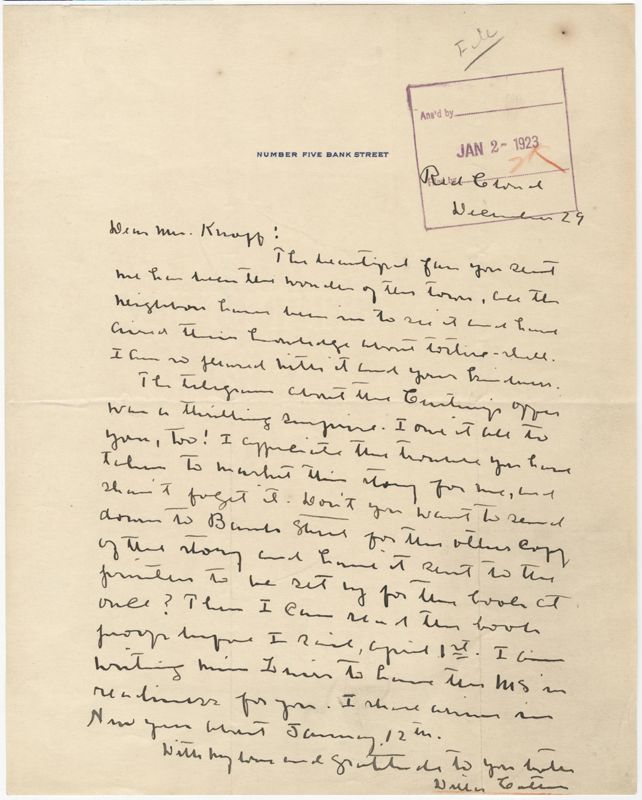 File
Ans'd by
JAN 2- 1923
NUMBER FIVE BANK STREET
Red Cloud
December 29
Dear Mr. Knopf:
The beautiful fan you sent
me has been the wonder of the town, all the
neighbors have been in to see it and have
aired their knowledge about tortoise-shell.
I am so pleased with it and your kindness.
The telegram about the Century's offer
was a thrilling surprise. I owe it all to
you, too! I appreciate the trouble you have
taken to market this story for me, and
shan't forget it. Don't you want to send
down to Bank Street for the other copy
of the story and have it sent to the
printers to be set up for the book at
once? Then I can read the book
proofs before I sail, April 1st. I am
writing Miss Lewis to have the MS in
readiness for you. I shall arrive in
New York about January 12th.
With my love and gratitude to you both
Willa Cather